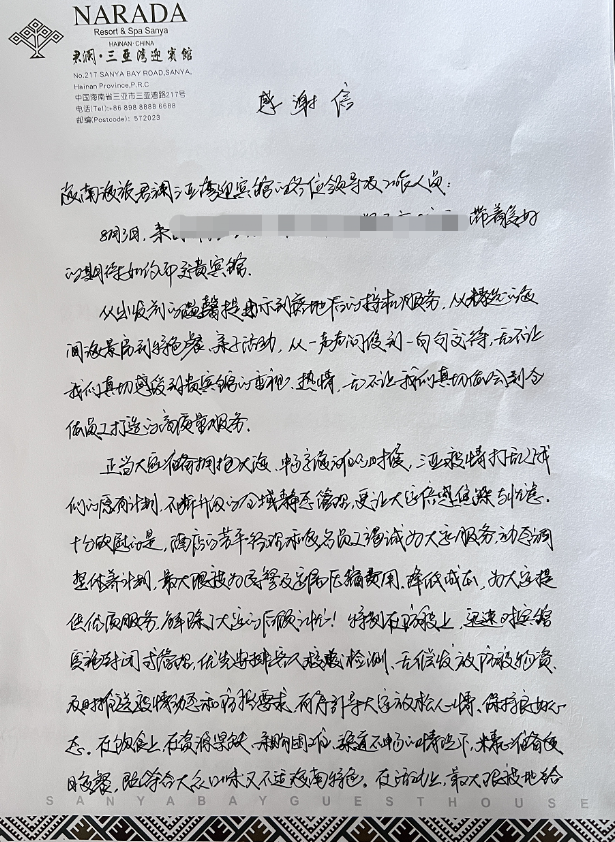 NARADA
Resort & Spa Sanya
HAINAN·CHINA
君澜·三亚湾迎宾馆
No.217 SANYA BAY ROAD,SANYA,
Hainan Province,P.R.C
中国海南省三亚市三亚湾路217号
电话(Tel):+86 898 8889 6688
邮编(Postcode): 572023
感谢信
海南海旅君澜三亚湾迎宾馆的各位领导及工作人员:
8月3日,来 带着美好
的期待如约而至贵宾馆.
从出发前的温馨提示到落地后的接机服务,从精选的海
间海景房到特色餐、亲子活动,从一声声问候到一句句交待,无不让
我们真切感受到贵宾馆的重视、热情,无不让我们真切体会到全
体员工打造的高质量服务.
正当大家准备拥抱大海、畅享海风的时候,三亚疫情打乱了我
们的原有计划,不断升级的全域静态管理,更让大家倍感焦躁与忧虑.
十分欣慰的是,酒店的 经理和每名员工竭诚为大家服务,动态调
整休养计划,最大限度为民警及家属压缩费用、降低成本,为大家提
供优质服务,解除了大家的后顾之忧!特别在防疫上,迅速对宾馆
实施封闭式管理,优先安排客人核酸检测、无偿发放防疫物资,
及时推送疫情动态和防控要求,有序引导大家放松心情、保持良好心
态.在饮食上,在资源紧缺、采购困难、渠道不畅的情况下,精心准备每
晚餐,既符合大众口味又不违海南特色.在活动上,最大限度地给
SANYABAYGUESTHOUSE